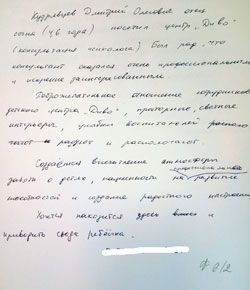 Кудрявцев Дмитрий Олегович отец
сына (4,6 года) посетил центр „Диво"
(консультация психолога) Был рад, что
консультант оказался очень профессиональным
и искренне заинтересованным.
Доброжелательное отношение сотрудников
детского центра „Диво", просторные, светлые
интерьеры, улыбки воспитателей
радуют и располагают.
Создается впечатление атмосферы
заботы о детях, нацеленности на развитие
способностей и создание радостного настроения
Хочется находится здесь и
приводить сюда ребёнка.